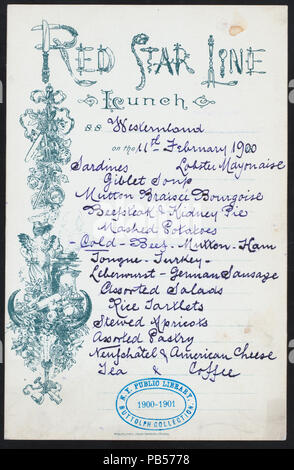 RED STAR LINE
Lunch
SS Westernland
on the 11th February 1900
Sardines Lobster Mayonaise
Giblet Soup
Mutton Braisée Bourgoise
Beefsteak & Kidney Pie
Mashed Potatoes
- Cold - Beef - Mutton - Ham
Tongue - Turkey -
Leberwurst - German Sausage
Assorted Salads
Rice Tartlets
Stewed Apricots
Assorted Pastry
Neufchâtel & American Cheese
Tea & Coffee
N.Y. PUBLIC LIBRARY
1900-1901
BUTTOLPH COLLECTION
alamy
Image ID: PB5778
www.alamy.com